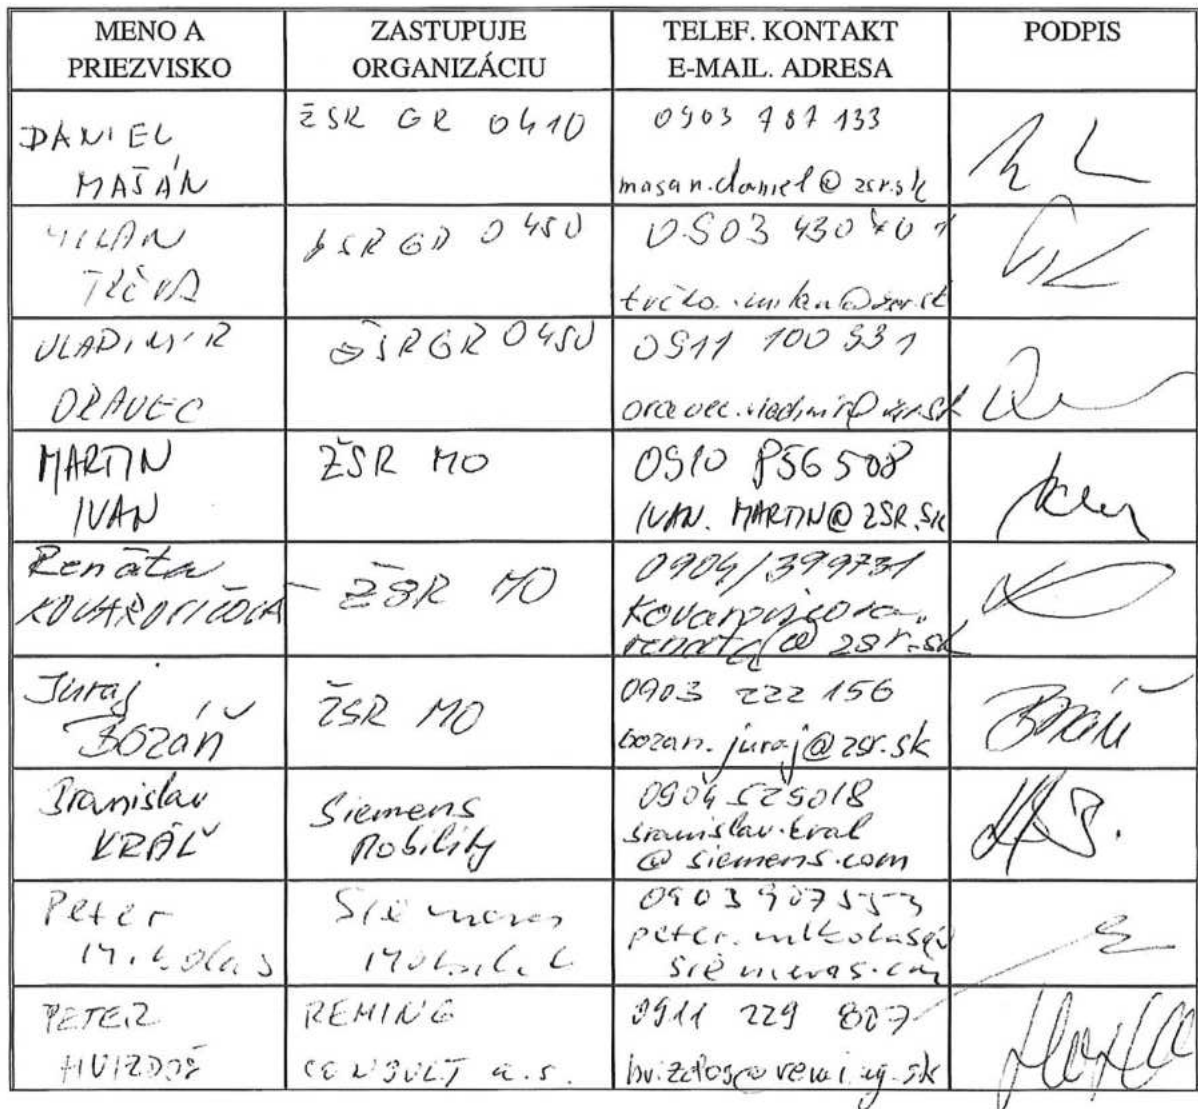 MENO A PRIEZVISKO ZASTUPUJE ORGANIZÁCIU TELEF. KONTAKT E-MAIL. ADRESA PODPIS
DANIEL MAŠÁN ŽSR GR 0410 0903 787 133
masan.daniel@zsr.sk
MILAN ŽSR GR 0450
VLADIMÍR ORAVEC ŽSR GR 0450 0911 100 331
oravec.vladimir@zsr.sk
MARTIN IVAN ŽSR MO 0910 856 508
IVAN.MARTIN@ZSR.SK
Renáta KOVAROVIČOVÁ ŽSR MO 0904/399731
kovarovicova.
renata@zsr.sk
Juraj Bozáň ŽSR MO 0903 222 156
bozan.juraj@zsr.sk
Branislav KRÁĽ Siemens Mobility
branislav.kral
@siemens.com
Peter Mikolas Siemens Mobility 0903 907553
PETER HVIZDOŠ REMING CONSULT a.s. 0911 229 807
hvizdos@reming.sk